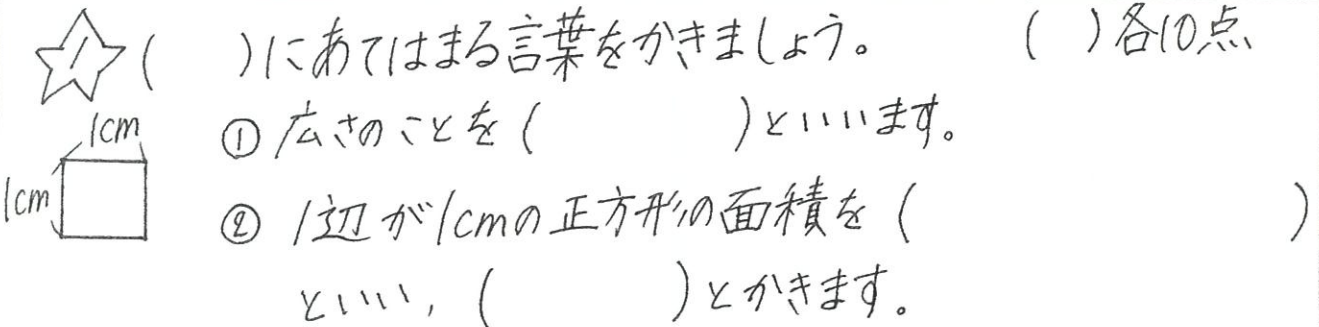 1 (　　)にあてはまる言葉をかきましょう。　(　)各10点
1cm
① 広さのことを(　　　　)といいます。
1cm
② 1辺が1cmの正方形の面積を(　　　　　　　　)
といい,(　　　　)とかきます。